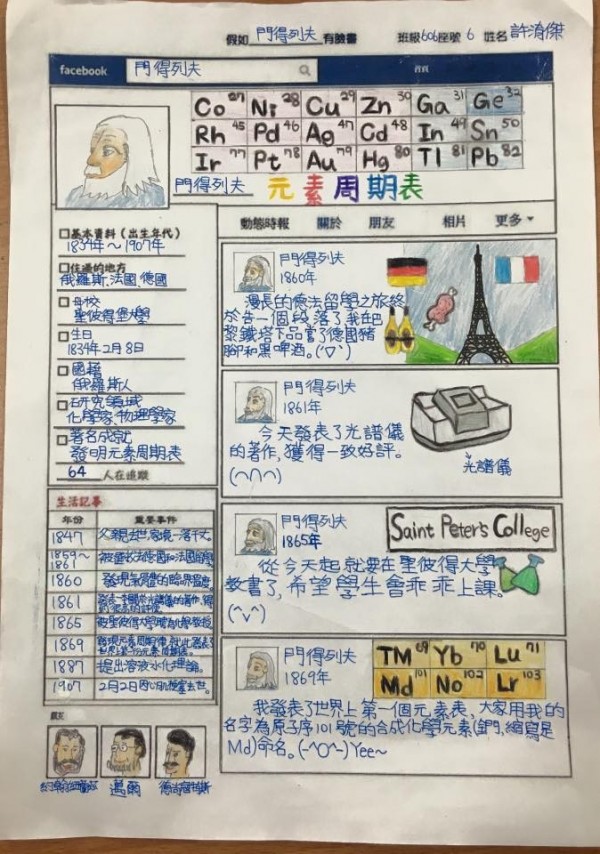 假如 門得列夫 有臉書 班級606座號 6 姓名 許淯傑
facebook 門得列夫 首頁
Co 27 Ni 28 Cu 29 Zn 30 Ga 31 Ge 32
Rh 45 Pd 46 Ag 47 Cd 48 In 49 Sn 50
Ir 77 Pt 78 Au 79 Hg 80 Tl 81 Pb 82
門得列夫 元素周期表
動態時報 關於 朋友 相片 更多
基本資料(出生年代)
1834年~1907年
住過的地方
俄羅斯、法國、德國
母校
聖彼得堡大學
生日
1834年2月8日
國籍
俄羅斯人
研究領域
化學家、物理學家
著名成就
發明元素周期表
64 人在追蹤
生活記事
年份 重要事件
1847 父親去世家境一落千丈。
1859~
1861
1860
1861
1865
1869
1887 提出溶液水化理論。
1907 2月2日因心肌梗塞去世。
邁爾
門得列夫
1860年
漫長的德法留學之旅終
於告一個段落了,我在巴
黎鐵塔下品嘗了德國豬
腳和黑啤酒。(´▽`)
門得列夫
1861年
今天發表了光譜儀
的著作,獲得一致好評。
(∩∩∩)
光譜儀
門得列夫
1865年
Saint Peter's College
從今天起就要在聖彼得大學
教書了,希望學生會乖乖上課。
(^v^)
門得列夫
1869年
TM 69 Yb 70 Lu 71
Md 101 No 102 Lr 103
我發表了世界上第一個元素表,大家用我的
名字為原子序101號的合成化學元素(鍆,縮寫是
Md)命名。(-^O^-) Yee~